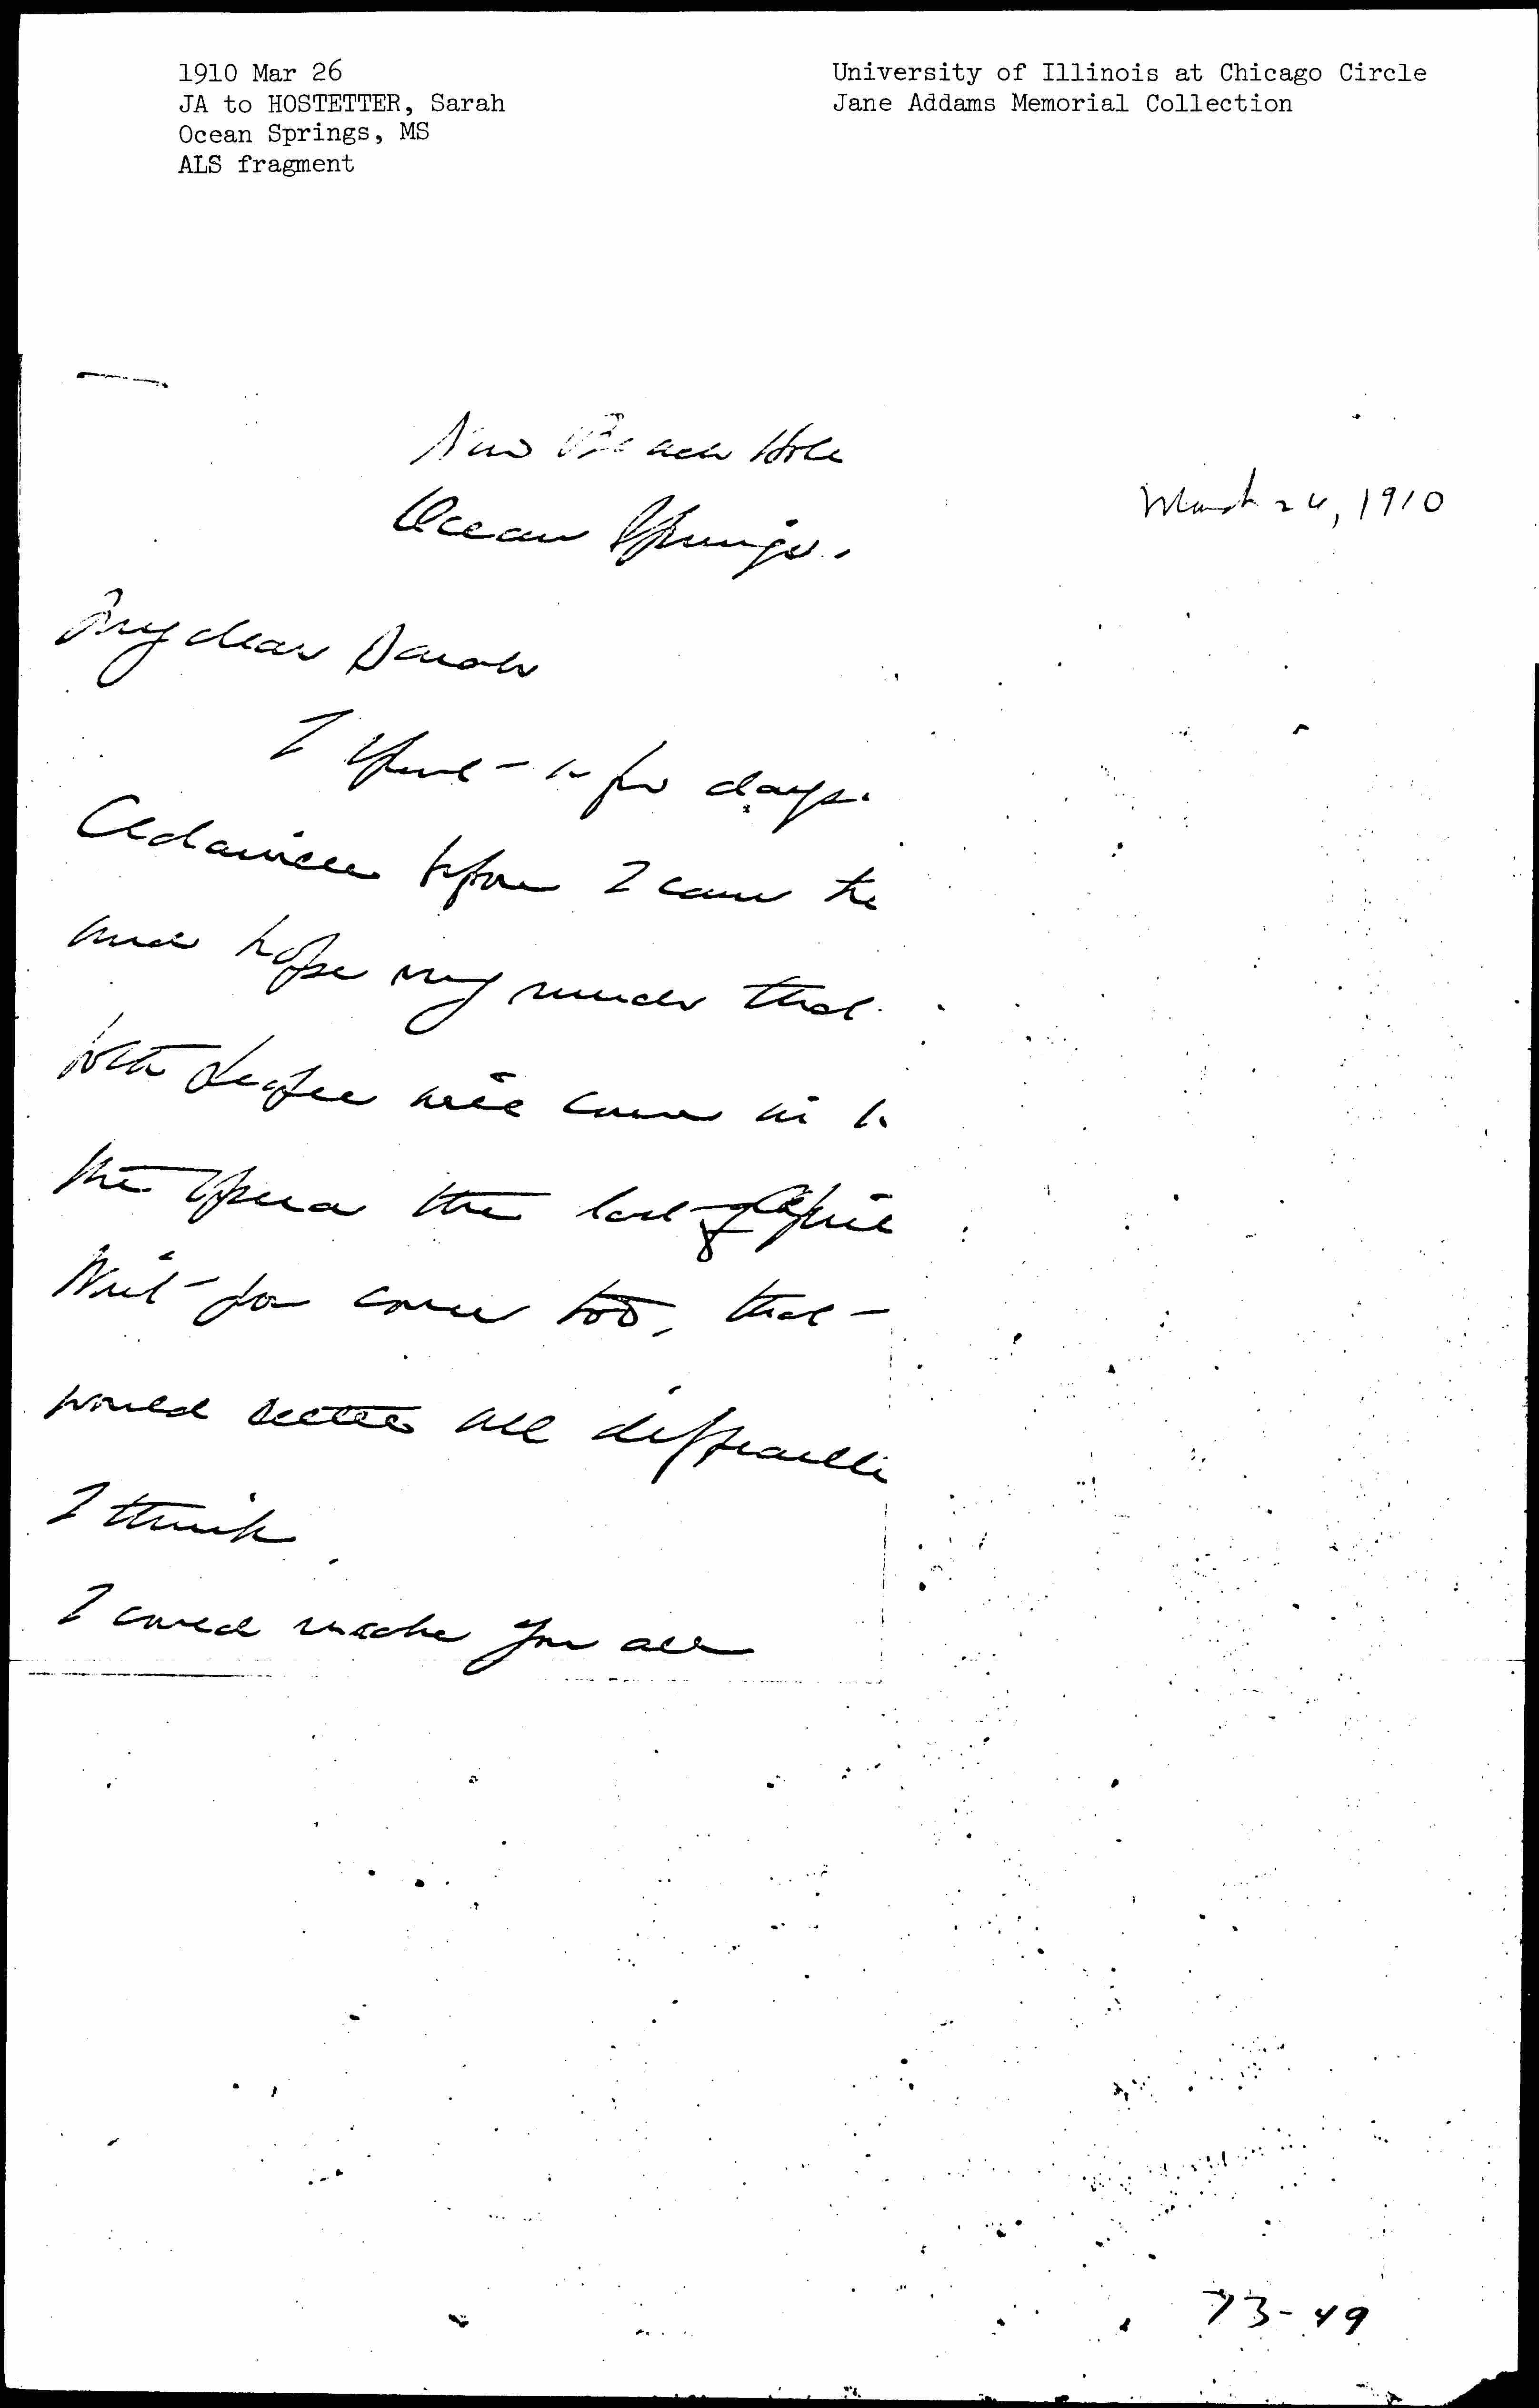 1910 Mar 26
JA to HOSTETTER, Sarah
Ocean Springs, MS
ALS fragment
University of Illinois at Chicago Circle
Jane Addams Memorial Collection
New Beach Hote
Ocean Springs.
March 26, 1910
My dear Sarah
I spent a few days.
Cedarville before I came he
and hope very much that
both will come in to
the opera the last of April
Won't you come too, that
would settle all difficultie
I think
I could make you all
73-49